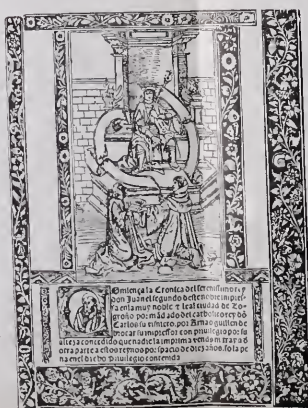 Comiença la Cronica del serenissimo rey
don Juan el segundo deste nõbre impres-
sa en la muy noble τ leal ciudad de Lo-
groño: por mãdado del catholico rey dõ
Carlos su visnieto: por Arnao guillen de
brocar su impressor con privilegio por su
alteza concedido que nadie la imprima venda ni traya d
otra parte a estos reynos por espacio de diez años, so la pe
na en el dicho privilegio contenida